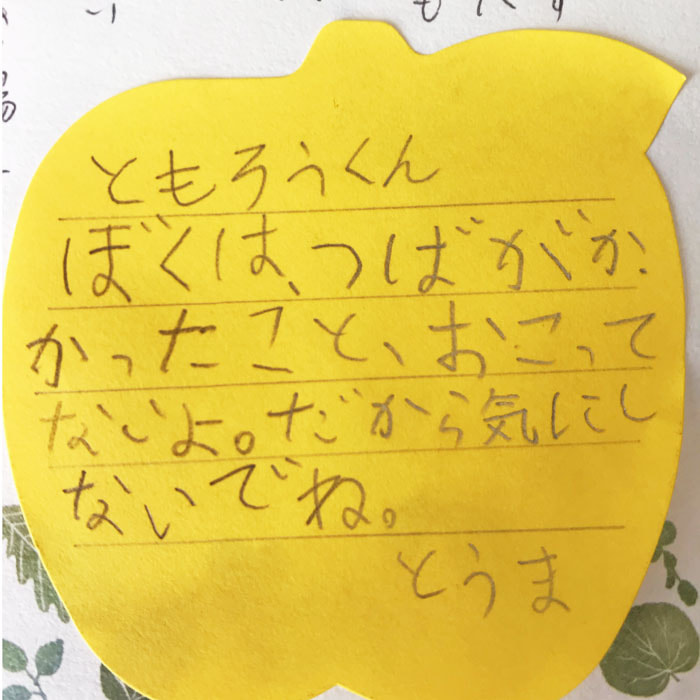 もです
場
ともろうくん
ぼくは、つばがか
かったこと、おこって
ないよ。だから気にし
ないでね。
とうま